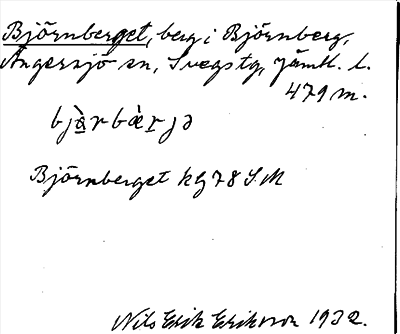 Björnberget, berg i Björnberg,
Ängersjö sn, Svegs tg, Jämtl. l.
479 m.
bjànbæ̀r̲jə
Björnberget kg 78 S.M
Nils Erik Eriksson 1932.